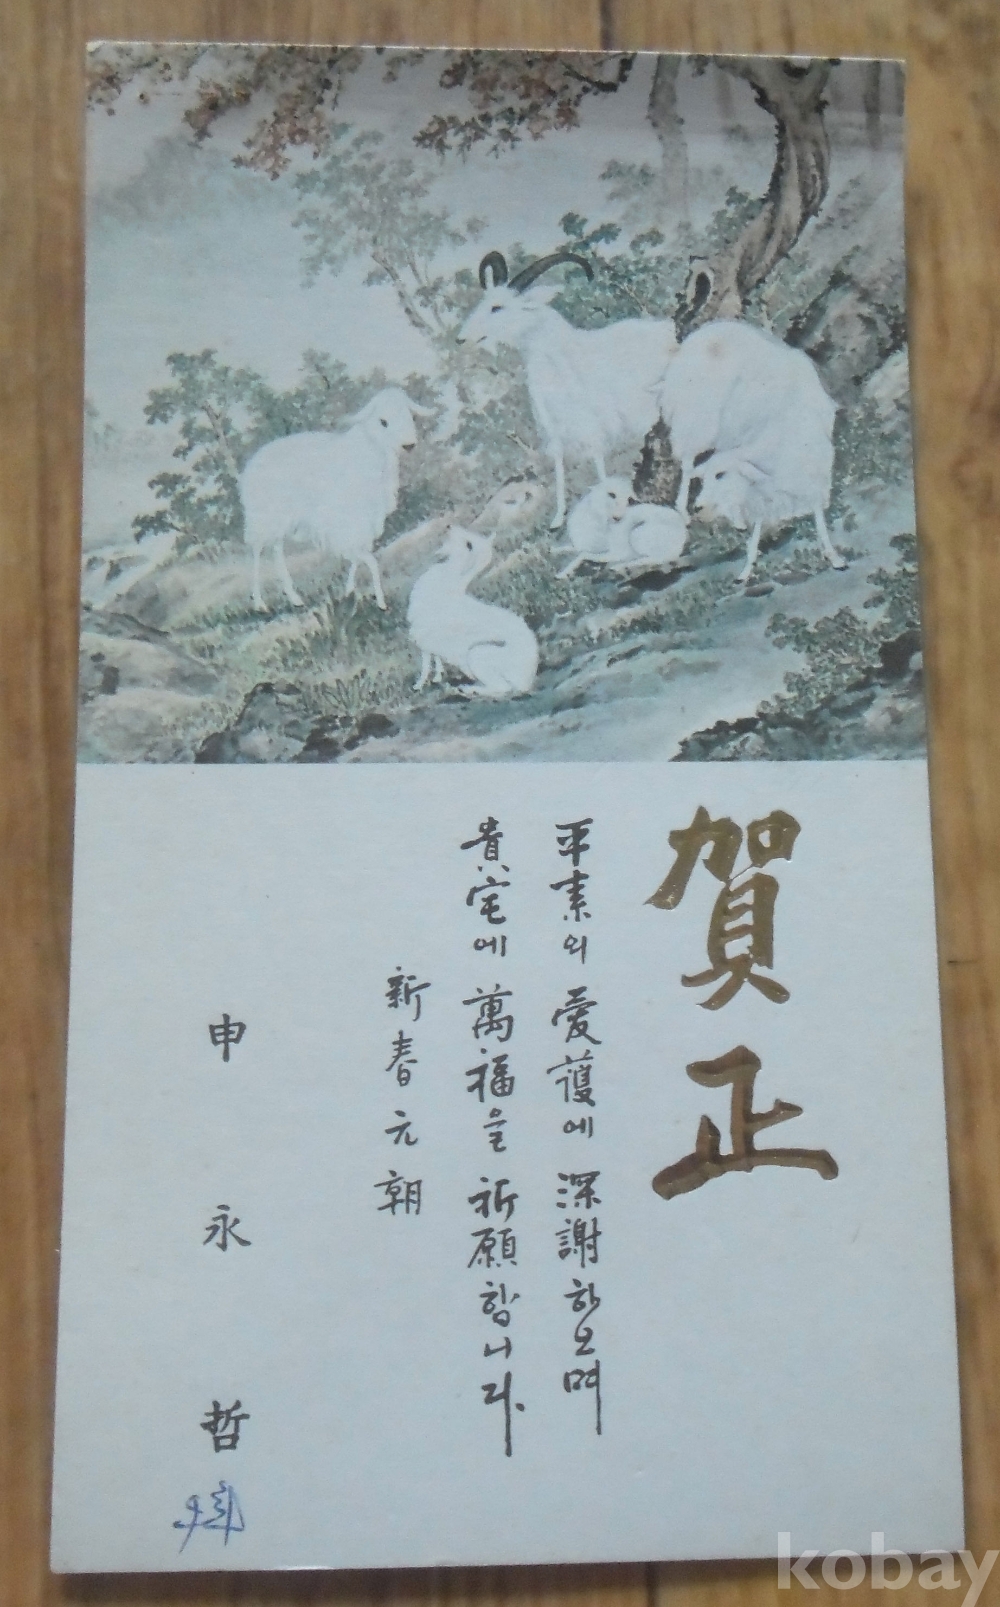 賀正
平素의 愛護에 深謝하오며
貴宅에 萬福을 祈願합니다.
新春元朝
申永哲
kobay